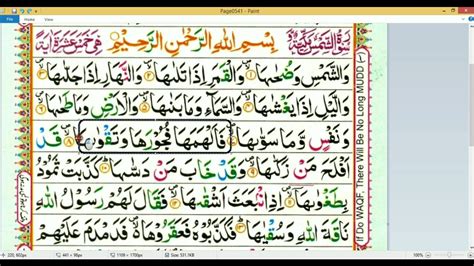 Page0541 - Paint
File
Home
View
سُوْرَةُ الشَّمْسِ مَكِّيَّةٌ بِسْمِ اللّٰهِ الرَّحْمٰنِ الرَّحِيْمِ هِيَ خَمْسَ عَشْرَةَ اٰيَةً
وَالشَّمْسِ وَضُحٰىهَا ۞ وَالْقَمَرِ اِذَا تَلٰىهَا ۞ وَالنَّهَارِ اِذَا جَلّٰىهَا ۞
وَالَّيْلِ اِذَا يَغْشٰىهَا ۞ وَالسَّمَآءِ وَمَا بَنٰىهَا ۞ وَالْاَرْضِ وَمَا طَحٰىهَا ۞
وَنَفْسٍ وَّمَا سَوّٰىهَا ۞ فَاَلْهَمَهَا فُجُوْرَهَا وَتَقْوٰىهَا ۞ قَدْ
اَفْلَحَ مَنْ زَكّٰىهَا ۞ وَقَدْ خَابَ مَنْ دَسّٰىهَا ۞ كَذَّبَتْ ثَمُوْدُ
بِطَغْوٰىهَا ۞ اِذِ انْۢبَعَثَ اَشْقٰىهَا ۞ فَقَالَ لَهُمْ رَسُوْلُ اللّٰهِ
نَاقَةَ اللّٰهِ وَسُقْيٰهَا ۞ فَكَذَّبُوْهُ فَعَقَرُوْهَا ۞ فَدَمْدَمَ عَلَيْهِمْ
If Do WAQF, There Will Be No Long MUDD (~)
220, 602px
441 × 96px
1109 × 1700px
Size: 531.1KB